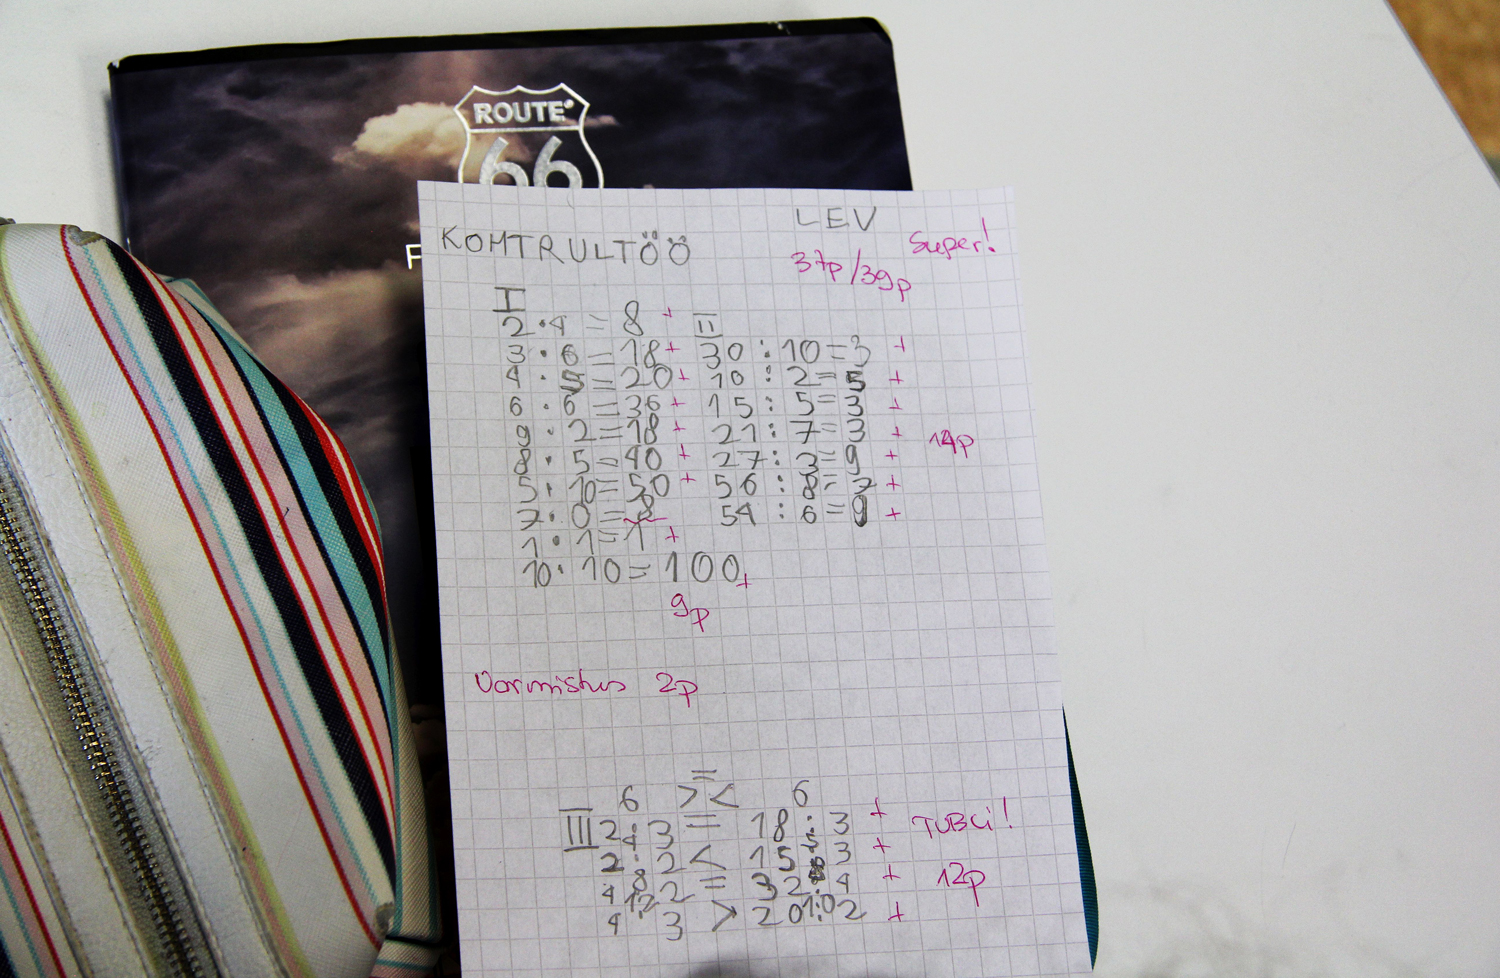 ROUTE
66
F
LEV
KOMTRULTÖÖ
Super!
37p/39p
I
2 · 4 = 8 +
3 · 6 = 18 +
4 · 5 = 20 +
6 · 6 = 36 +
9 · 2 = 18 +
8 · 5 = 40 +
5 · 10 = 50 +
7 · 0 = 8
1 · 1 = 1 +
10 · 10 = 100 +
9p
II
30 : 10 = 3 +
10 : 2 = 5 +
15 : 5 = 3 +
21 : 7 = 3 +
27 : 3 = 9 +
56 : 8 = 7 +
54 : 6 = 9 +
14p
Vormistus 2p
=
6 > < 6
III 2 · 3 = 18 : 3 +
4 5
2 · 2 < 15 : 3 +
8 8
4 · 2 = 32 : 4 +
12 10
4 · 3 > 20 : 2 +
TUBLi!
12p